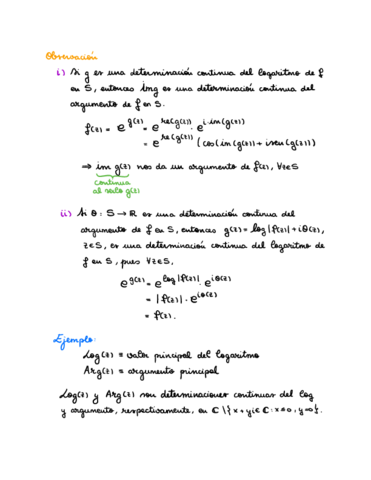 Observación
i) Si g es una determinación continua del logaritmo de f
en S, entonces img es una determinación continua del
argumento de f en S.
f(z) = e^{g(z)} = e^{re(g(z))} · e^{i·im(g(z))}
= e^{re(g(z))} (cos(im(g(z))) + isen(g(z)))
⇒ im g(z) nos da un argumento de f(z), ∀z∈S
continua
al serlo g(z)
ii) Si θ : S → R es una determinación continua del
argumento de f en S, entonces g(z) = log|f(z)| + iθ(z),
z∈S, es una determinación continua del logaritmo de
f en S, pues ∀z∈S,
e^{g(z)} = e^{log|f(z)|} · e^{iθ(z)}
= |f(z)| · e^{iθ(z)}
= f(z).
Ejemplo:
Log(z) ≡ valor principal del logaritmo
Arg(z) ≡ argumento principal
Log(z) y Arg(z) son determinaciones continuas del log
y argumento, respectivamente, en C \ { x + yi ∈ C : x≤0, y=0 }.